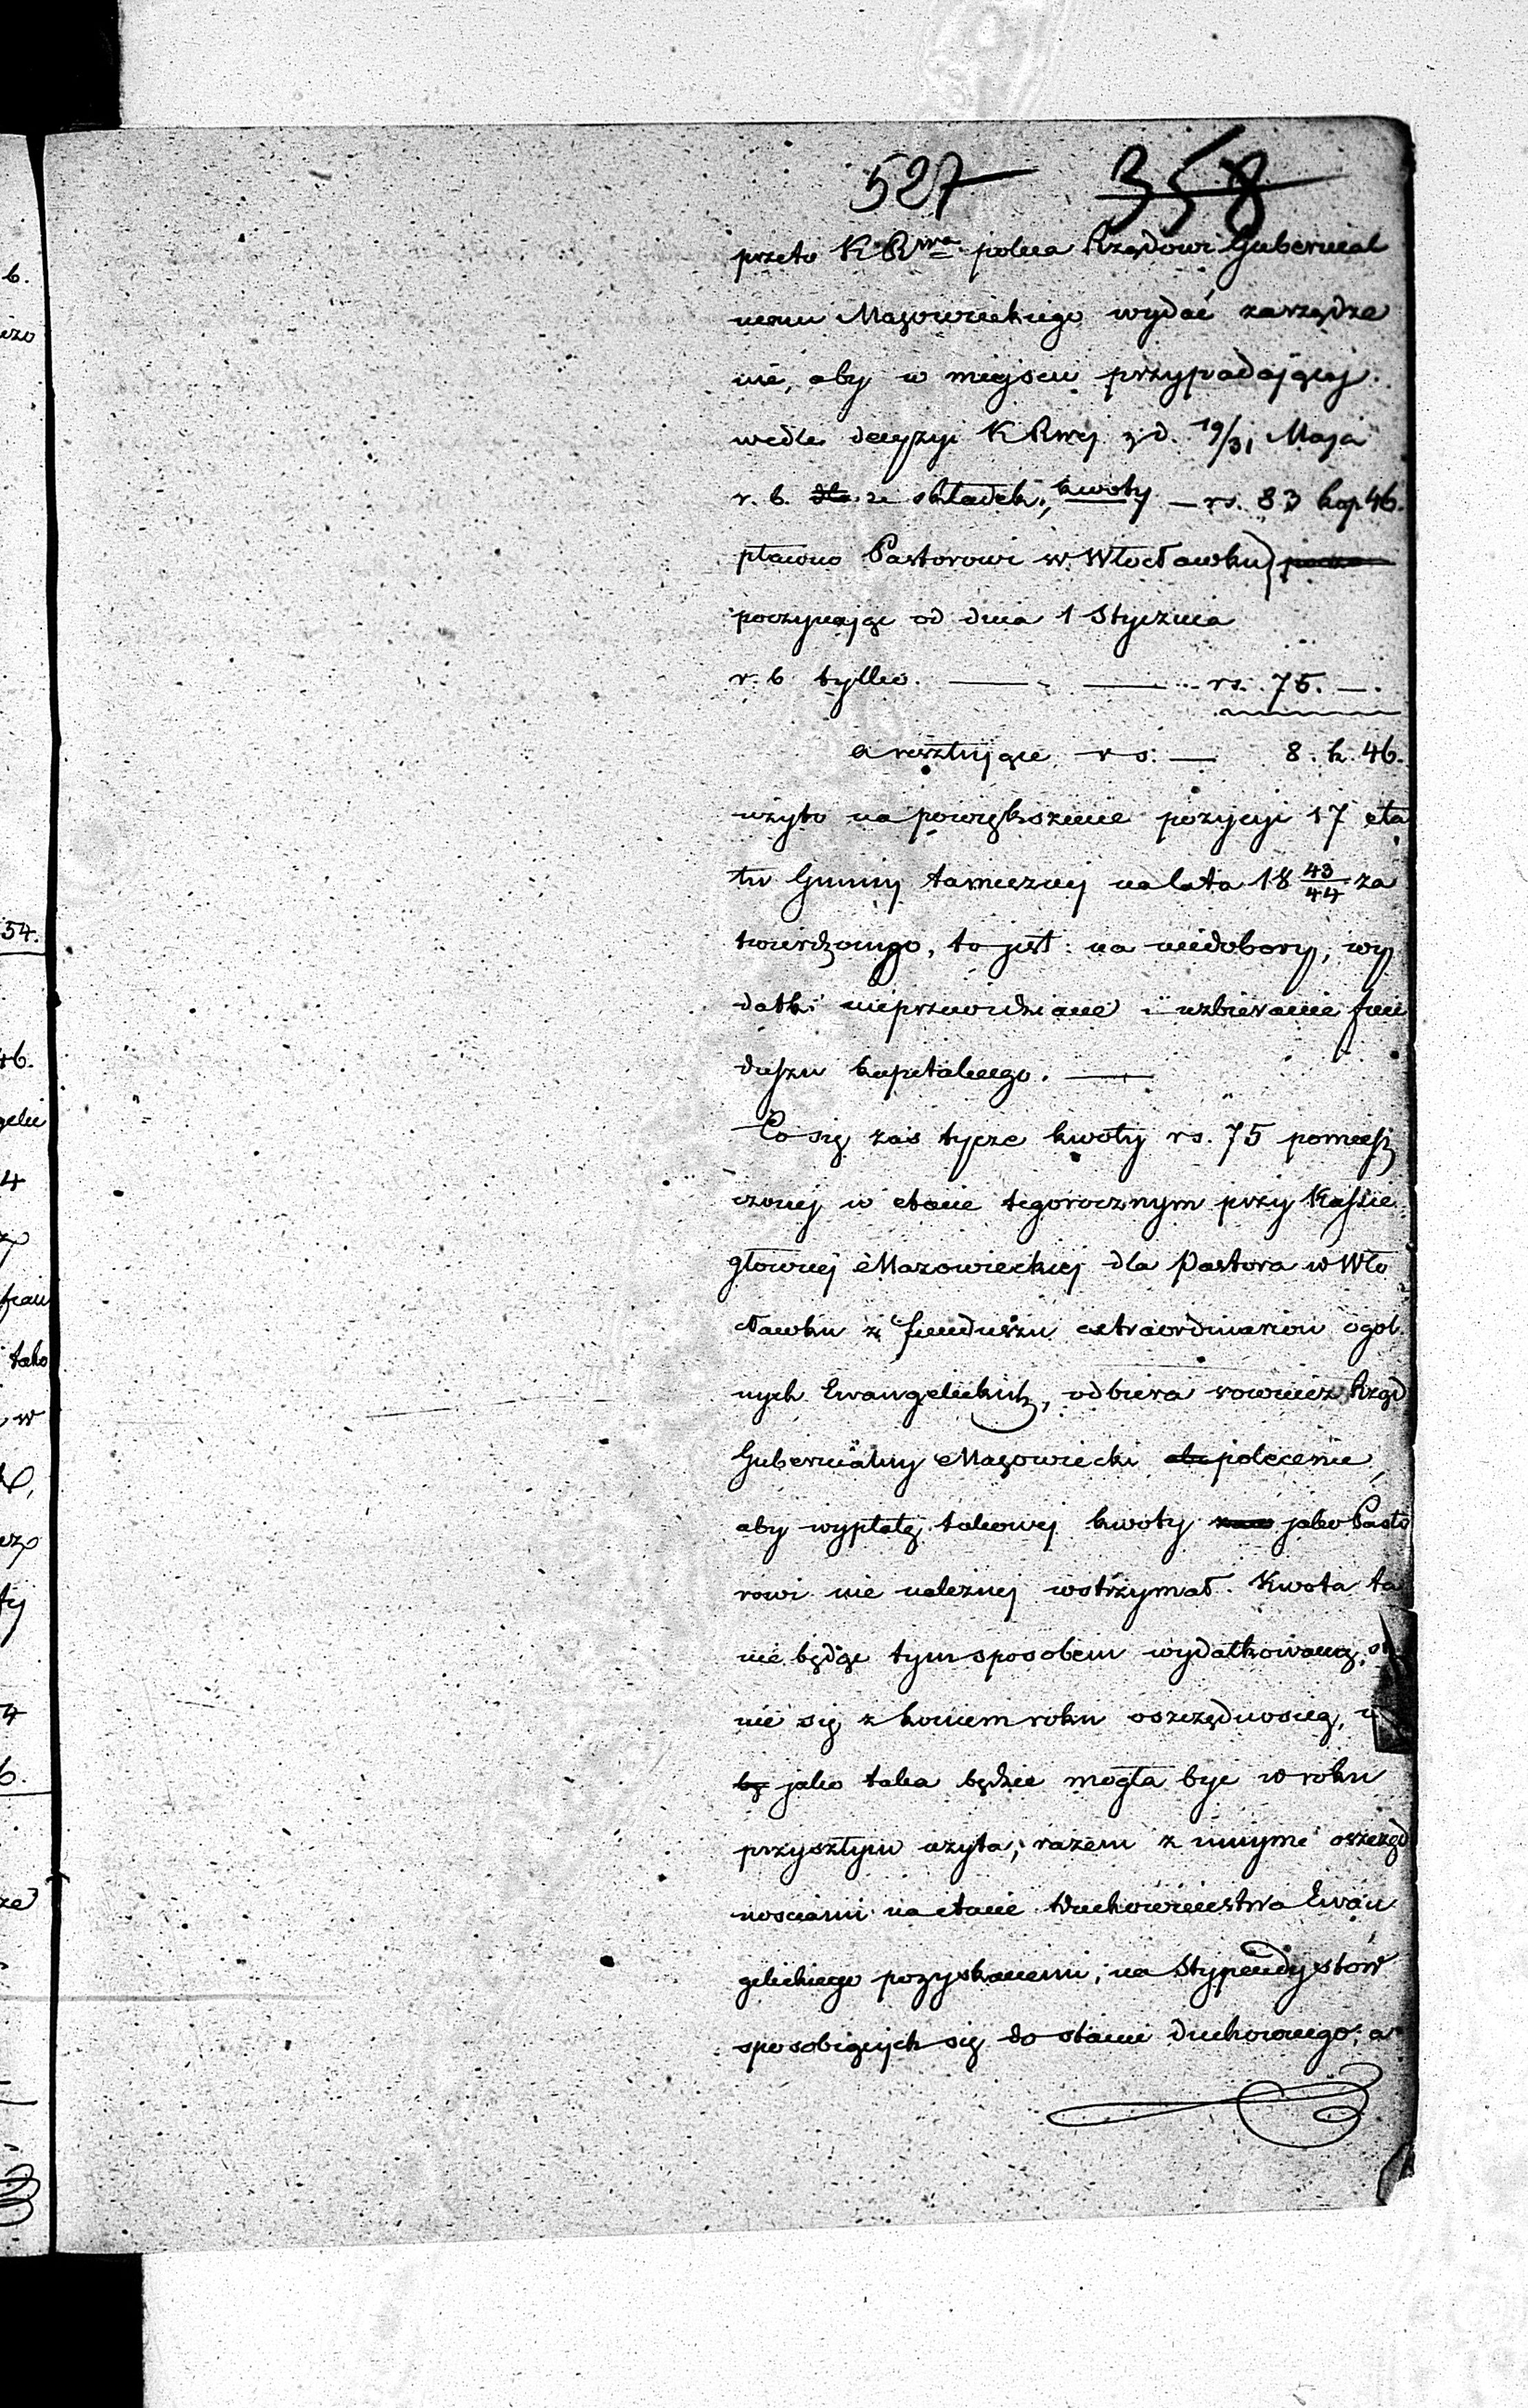 527 358
przeto K R wa poleca Rządowi Gubernial
nemu Mazowieckiego wydać zarządze
nie, aby w miejscu przypadającej
wedle decyzyi K Rwej z d. 19/31 Maja
r. b. dla ze składek, kwoty — rs. 83 kop 46.
płacono Pastorowi w Włocławku)
poczynając od dnia 1 Stycznia
r. b. tylko. — — rs. 75. —.
a resztujące rs. — 8. k. 46.
użyto na powiększenie pozycyi 17 eta
tu Gminy tamecznej na lata 18 43/44 za
twierdzonego, to jest: na niedobory, wy
datki nieprzewidziane i uzbieranie fun
duszu kapitalnego. —
Co się zas tycze kwoty rs. 75 pomiesz
czonej w etacie tegorocznym przy Kassie
głownej Mazowieckiej dla Pastora w Wło
cławku z funduszu extraordinariów ogol
nych Ewangelickich, odbiera rownież Rząd
Gubernialny Mazowiecki polecenie,
aby wypłatę takowej kwoty jako Pasto
rowi nie należnej wstrzymał. Kwota ta
nie będąc tym sposobem wydatkowaną, sta
nie się z koncem roku oszczędnoscią, i
bę jako taka będzie mogła byc w roku
przyszłym użyta, razem z innymi oszczęd
nosciami na etacie Duchowieństwa Ewan
gelickiego pozyskanemi, na Stypendystów
sposobiących się do stanu duchownego, a
b.
54.
46.
gelic
4
tako
w
4
6.